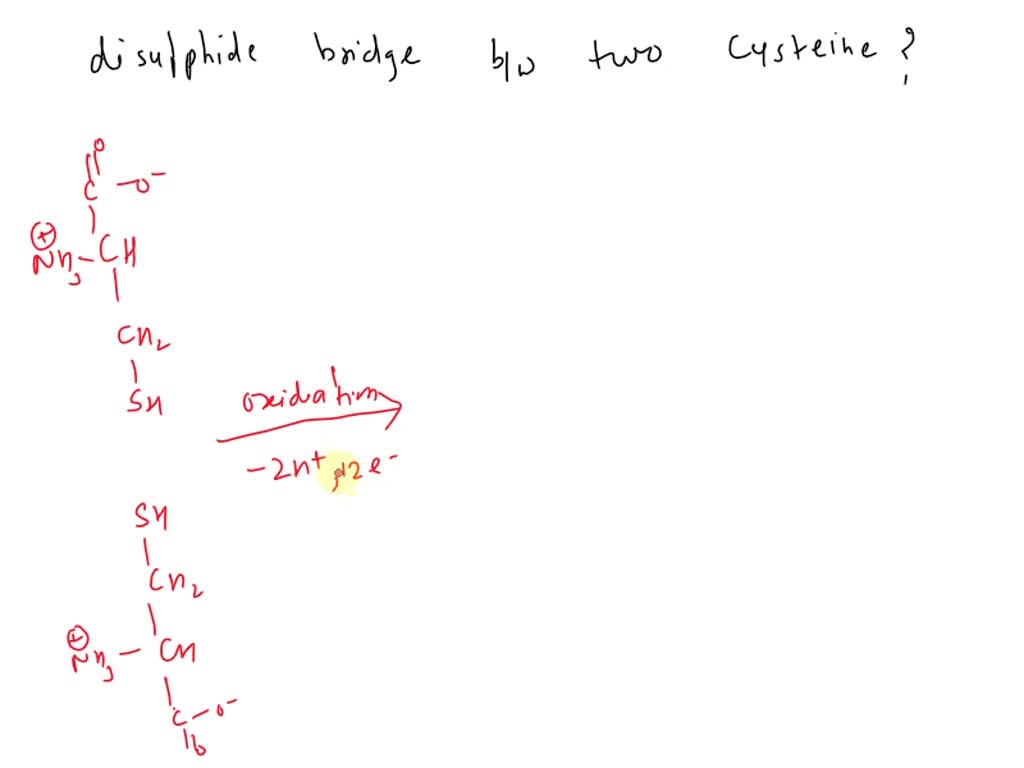 disulphide bridge b/w two cysteine ?
O
C - O⁻
⊕
NH₃ - CH
CH₂
SH
oxidation
-2H⁺, 2e⁻
SH
CH₂
⊕
NH₃ - CH
C - O⁻
O